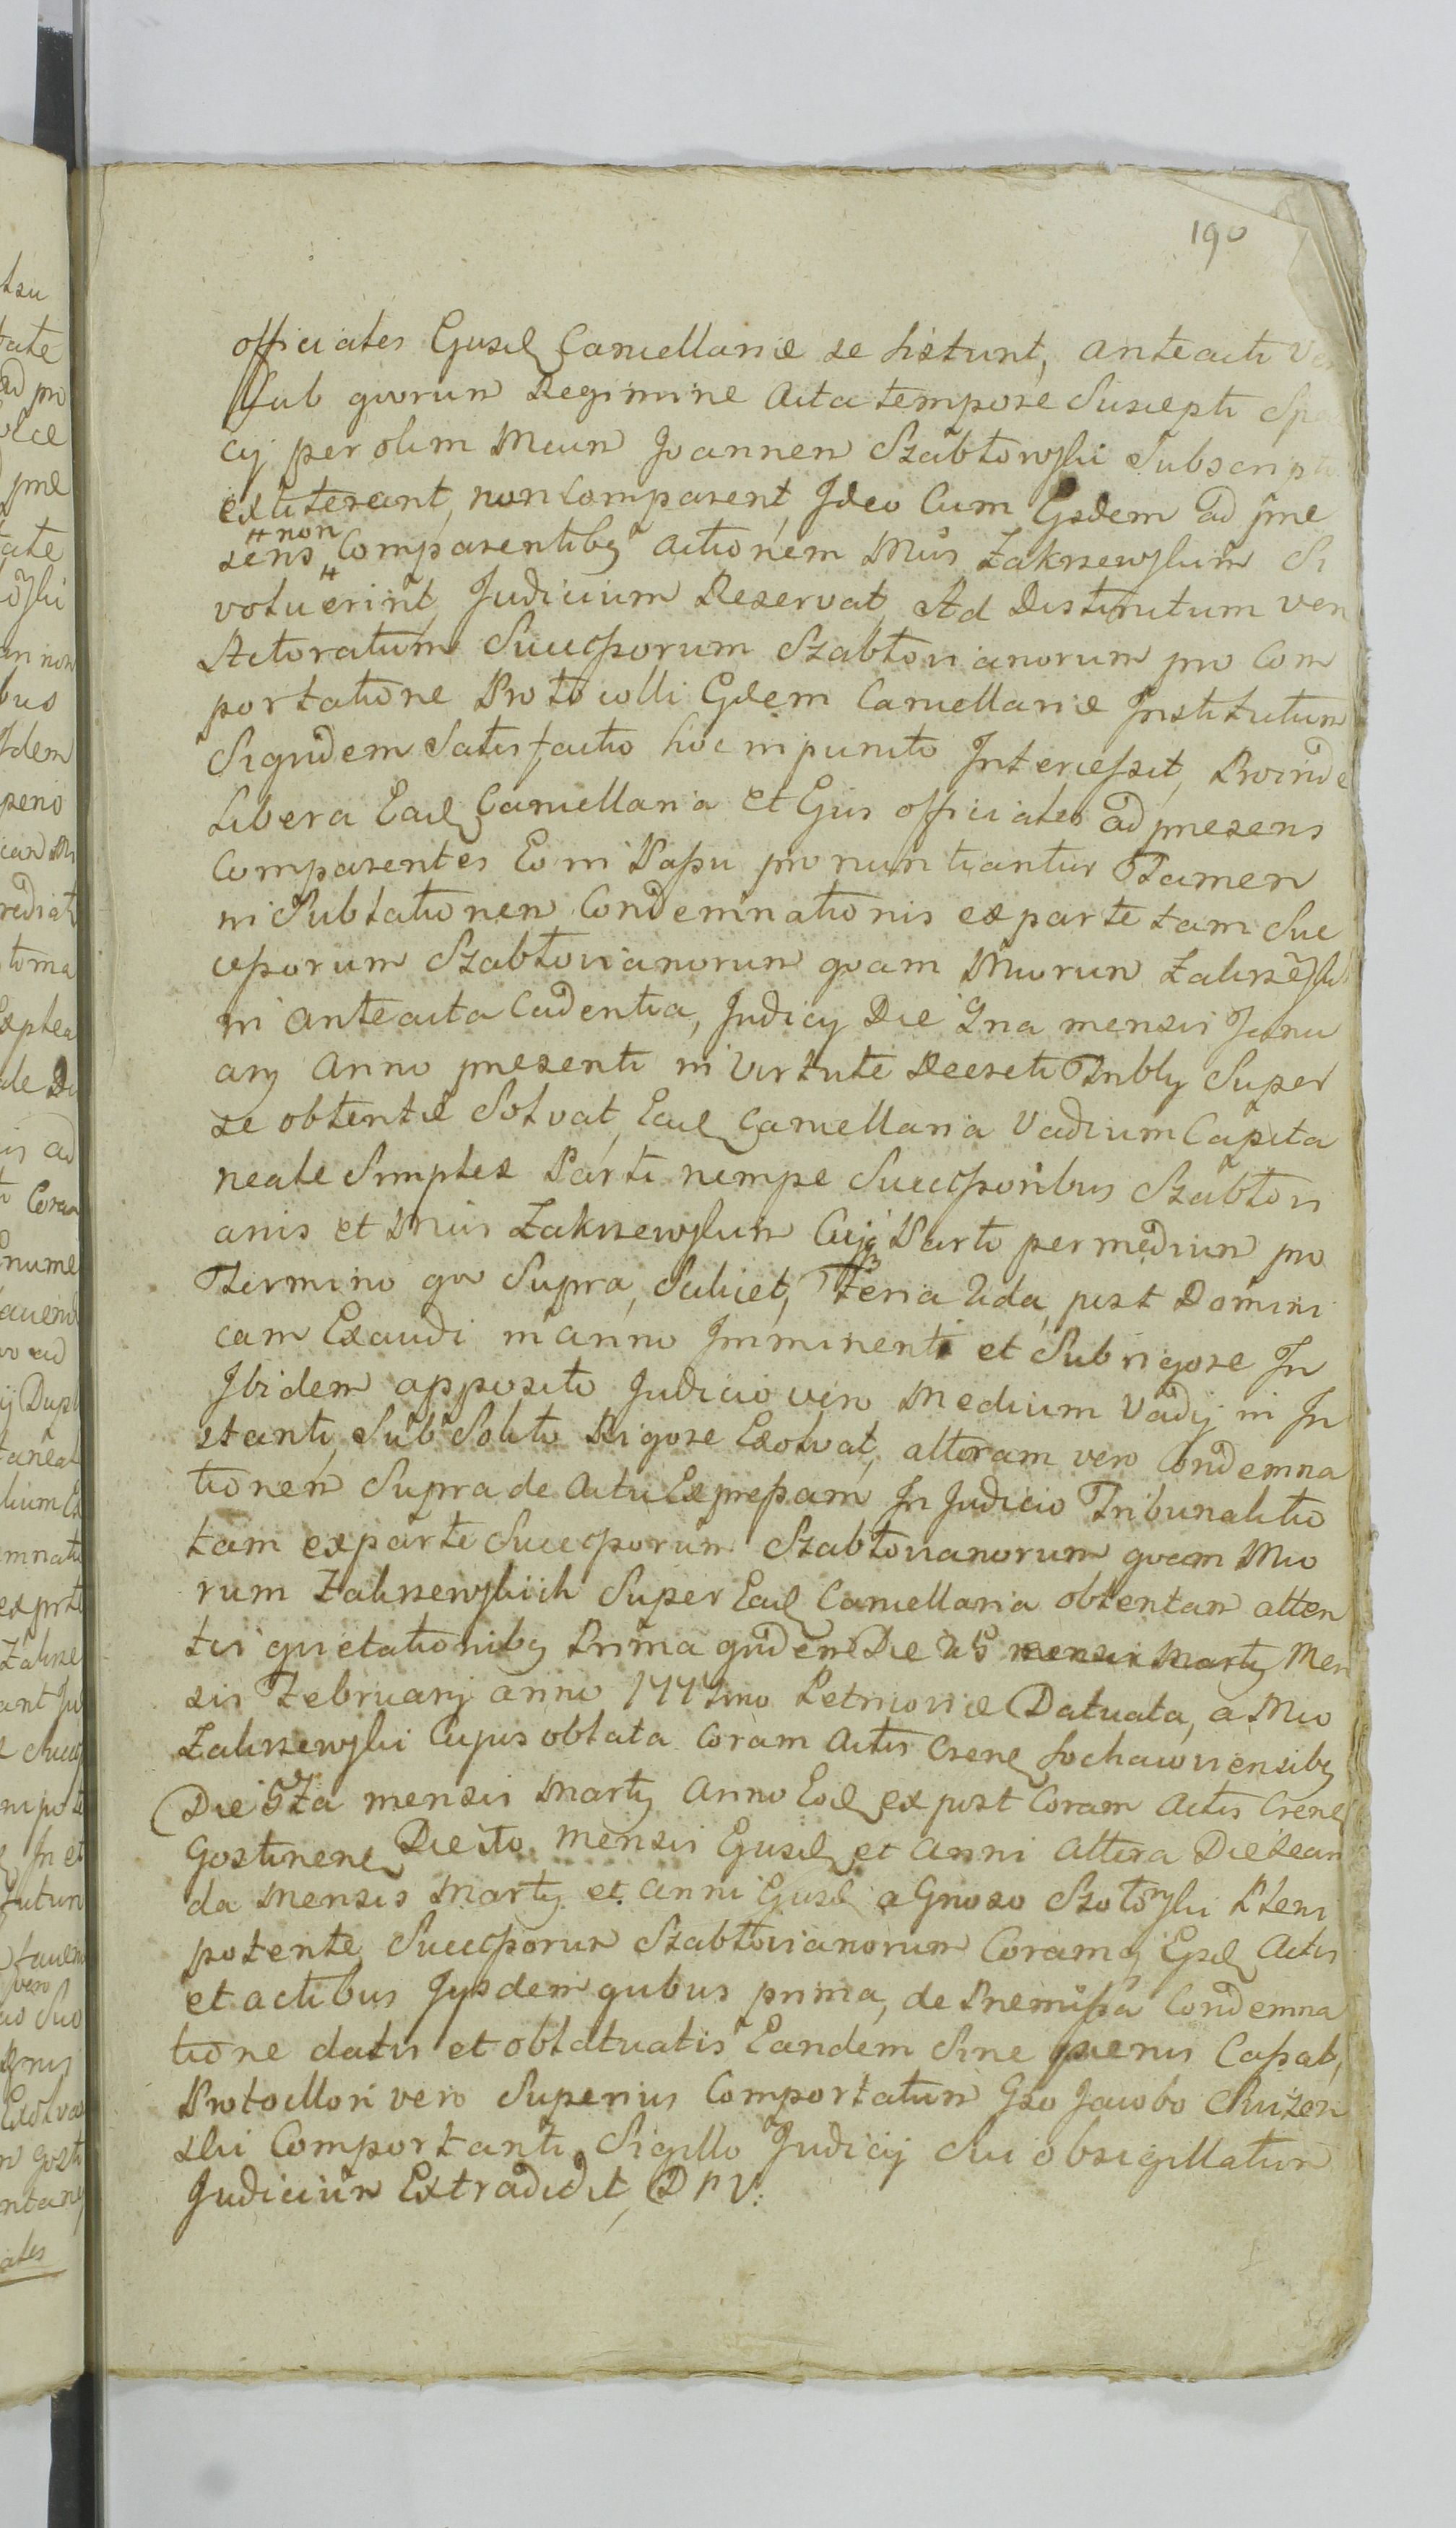 190
officiales Ejusd Cancellariæ se sistunt, anteacti
Sub quorum Regimine Acta tempore Suscepti
cij per olim Mcum Joannem Szabłowski Subscripti
extiterant, non Comparent, Ideo Cum Ejsdem ad præ
sens non Comparentibꝫ actionem Mcis Zakrzewskim Si
voluerint, Judicium Reservat, Ad Distinctum vero
Actoratum Successorum Szabłovianorum pro Com
portatione Protocolli Ejdem Cancellariæ Institutum
Siquidem Satisfactio hoc in puncto Intercessit, Proinde
Libera Ead Cancellaria et Ejus officiales ad præsens
Comparentes Eo in Passu pronuntiantur Tamen
in Sublationem Condemnationis ex parte tam Suc
cessorum Szabłovianorum quam Mcorum Zakrzewski
in anteacta Cadentia, Judicij Die 2na mensis Janu
arij Anno præsenti in Virtute Decreti Triblij Super
se obtentæ Solvat, Ead Cancellaria Vadium Capita
neale Simplex Parti nempe Successoribus Szabłovi
anis et Mcis Zakrzewskim Cuiqꝫ Parti per medium pro
Termino quo Supra, Scilicet, Feria 2da, post Domini
cam Exaudi in anno Imminenti et Sub rigore In
Ibidem apposito Judicio vero Medium Vadij in In
stanti, Sub Solito Rigore Exolvat, alteram vero Condemna
tionem Supra de Actu Expressam In Judicio Tribunalitio
tam ex parte Successorum Szabłovianorum quam Mco
rum Zakrzewskich Super Ead Cancellaria obtentam atten
tis quietationibꝫ Prima quidem Die 25 mensis Martij Men
sis Februarij anno 1774mo Petricoviæ Datuata, a Mco
Zakrzewski Cujus oblata Coram Actis Crens Sochacoviensibꝫ
Die 5ta mensis Martij Anno Eod ex post Coram Actis Crens
Gostinens Die mensis Ejusd et Anni Altera Die Secun
da Mensis Martij et Anni Ejusd a Gnoso Szołowski Pleni
potente Successorum Szabłovianorum Coramqꝫ Ejsd Actis
et actibus Iysdem qubus prima, de Præmissa Condemna
tione datis et oblatuatis Eandem Sine pænis Cassat,
Protocollon vero Superius Comportatum Gso Jacobo
ski Comportanti Sigillo Judicij Sui obsigillatum
Judicium Extradidit, D P V: